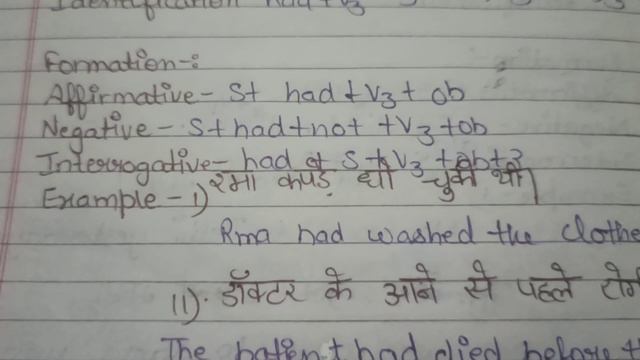 Identification had+V3
Formation-:
Affirmative- S+ had +V3+ ob
Negative- S+had+not +V3+ob
Interrogative- had + S+V3 +ob+?
Example-1) रमा कपड़े धो चुकी थी।
Rma had washed the clothe
11). डॉक्टर के आने से पहले रोग
The patient had died before t